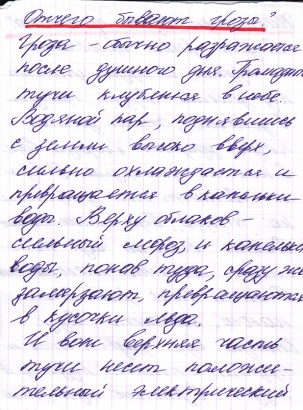 Отчего бывают грозы?
Гроза - обычно разражается
после душного дня. Громадные
тучи клубятся в небе.
Водяной пар, поднявшись
с земли высоко вверх,
сильно охлаждается и
превращается в капельки
воды. Верху облаков -
сильный мороз, и капельки
воды, попав туда, сразу же
замерзают, превращаются
в кусочки льда.
И вот верхняя часть
тучи несет положи-
тельный электрический